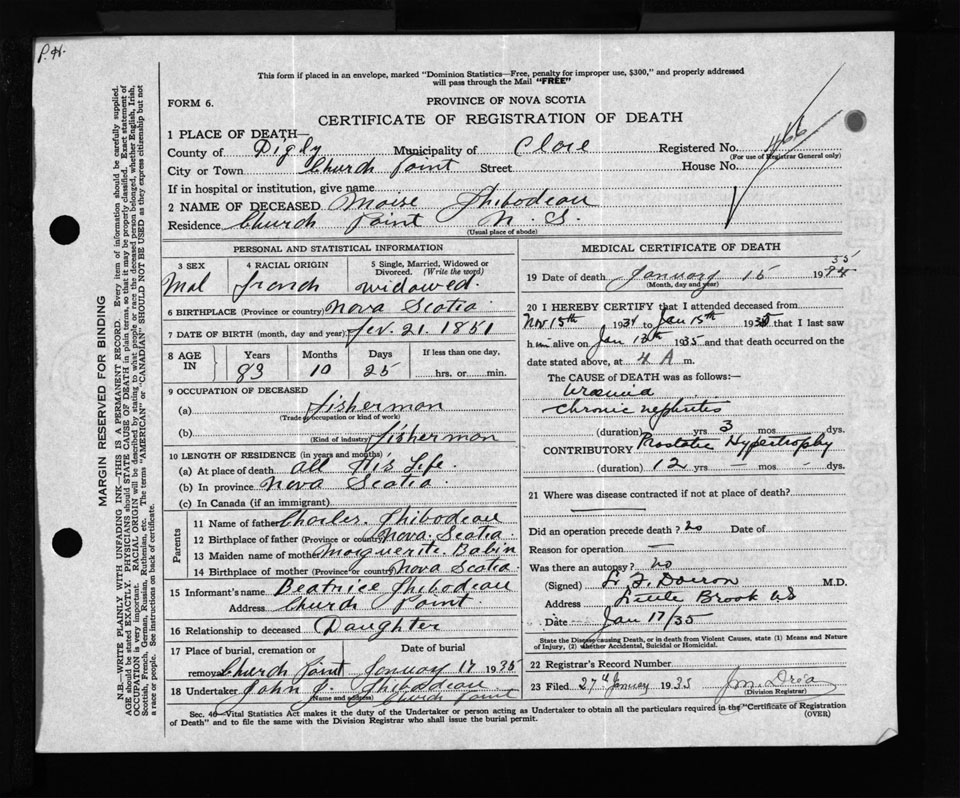 P.H.
This form if placed in an envelope, marked "Dominion Statistics—Free, penalty for improper use, $300," and properly addressed
will pass through the Mail "FREE"
FORM 6.
PROVINCE OF NOVA SCOTIA
CERTIFICATE OF REGISTRATION OF DEATH
1 PLACE OF DEATH—
County of Digby Municipality of Clare Registered No. 466
(For use of Registrar General only)
City or Town Church Point Street House No.
If in hospital or institution, give name
2 NAME OF DECEASED Moise Thibodeau
Residence Church Point N. S.
(Usual place of abode)
PERSONAL AND STATISTICAL INFORMATION
3 SEX 4 RACIAL ORIGIN 5 Single, Married, Widowed or
Divorced. (Write the word)
Mal french widowed.
6 BIRTHPLACE (Province or country) Nova Scotia
7 DATE OF BIRTH (month, day and year) Fev. 21. 1851
8 AGE IN Years Months Days If less than one day,
83 10 25 hrs. or min.
9 OCCUPATION OF DECEASED
(a) fisherman
(Trade, occupation or kind of work)
(b) fisherman
(Kind of industry)
10 LENGTH OF RESIDENCE (in years and months)
(a) At place of death all His Life.
(b) In province Nova Scotia
(c) In Canada (if an immigrant)
Parents
11 Name of father Charles Thibodeau
12 Birthplace of father (Province or country) Nova Scotia
13 Maiden name of mother Marguerite Babin
14 Birthplace of mother (Province or country) Nova Scotia
15 Informant's name Beatrice Thibodeau
Address Church Point.
16 Relationship to deceased Daughter
17 Place of burial, cremation or Date of burial
removal Church Point January 17 1935
18 Undertaker John J. Thibodeau
(Name and address) Church Point
MEDICAL CERTIFICATE OF DEATH
19 Date of death January 15 1934 35
(Month, day and year)
20 I HEREBY CERTIFY that I attended deceased from
Nov 15th 1934 to Jan 15th 1935 that I last saw
him alive on Jan 13th 1935 and that death occurred on the
date stated above, at 4 A m.
The CAUSE OF DEATH was as follows:—
Uraemia
Chronic nephritis
(duration) yrs 3 mos. dys.
CONTRIBUTORY Prostatic Hypertrophy
(duration) 12 yrs — mos — dys.
21 Where was disease contracted if not at place of death?
Did an operation precede death? no Date of
Reason for operation —
Was there an autopsy? no
(Signed) L. F. Doiron M.D.
Address Little Brook NS
Date Jan 17/35
State the Disease causing Death, or in death from Violent Causes, state (1) Means and Nature
of Injury, (2) whether Accidental, Suicidal or Homicidal.
22 Registrar's Record Number
23 Filed 27th January 1935
(Division Registrar)
Sec. 40—Vital Statistics Act makes it the duty of the Undertaker or person acting as Undertaker to obtain all the particulars required in the "Certificate of Registration
of Death" and to file the same with the Division Registrar who shall issue the burial permit.
(OVER)
MARGIN RESERVED FOR BINDING
N.B.—WRITE PLAINLY WITH UNFADING INK—THIS IS A PERMANENT RECORD. Every item of information should be carefully supplied.
AGE should be stated EXACTLY. PHYSICIANS should STATE CAUSE OF DEATH in plain terms, so that it may be properly classified. Exact statement of
OCCUPATION is very important. RACIAL ORIGIN will be described by stating to what people or race the deceased person belonged, whether English, Irish,
Scottish, French, German, Russian, Ruthenian, etc. The terms "AMERICAN" or "CANADIAN" SHOULD NOT BE USED as they express citizenship but not
a race or people. See instructions on back of certificate.